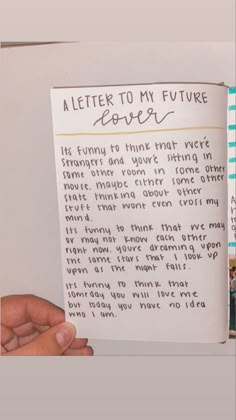 A LETTER TO MY FUTURE
lover
Its funny to think that we're
strangers and you're sitting in
some other room in some other
house. maybe either some other
state thinking about other
stuff that wont even cross my
mind.
Its funny to think that we may
or may not know each other
right now. you're dreaming upon
the same stars that I look up
upon as the night falls.
Its funny to think that
someday you will love me
but today you have no idea
who I am.